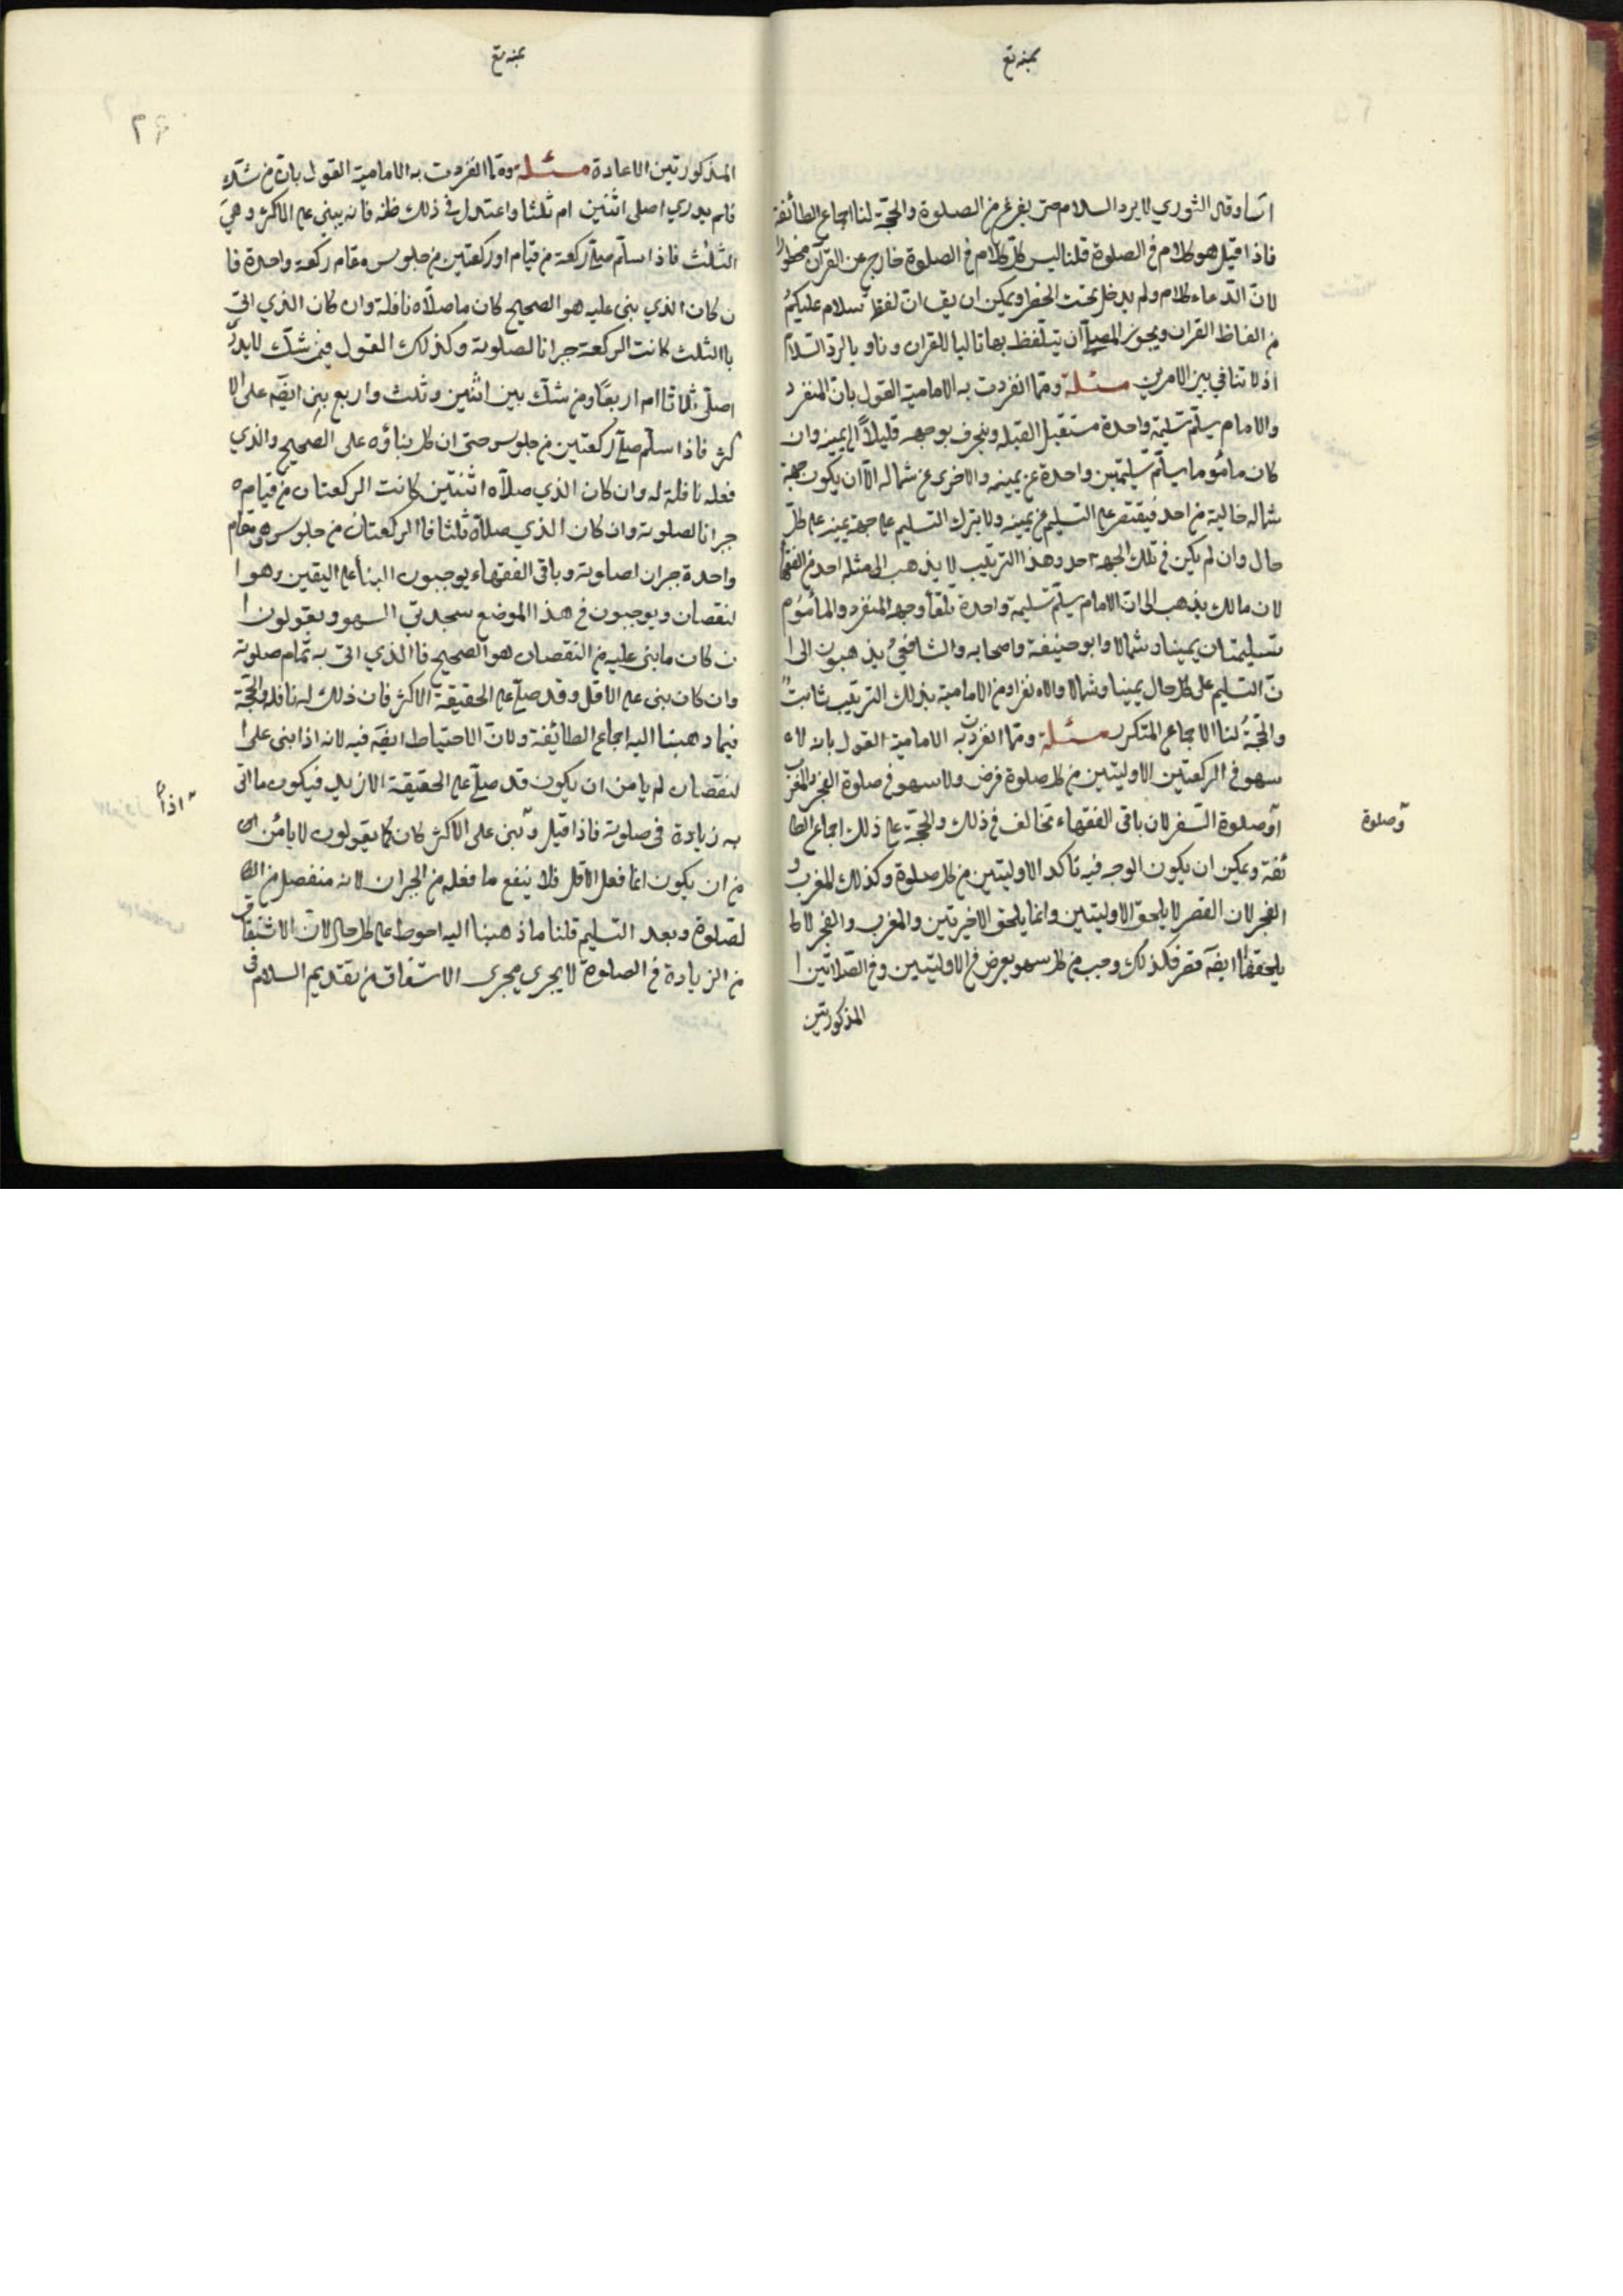 بمنه تع
اشا وقال الثوري لا يرد السلام حتى يفرغ من الصلوة والحجة لنا اجماع الطائفة
فاذا قيل هو كلام في الصلوة قلنا ليس كل كلام في الصلوة خارج عن القرآن محظورا
لان الدعاء كلام ولم يدخل تحت الحظر ويمكن ان يقا ان لفظ سلام عليكم
من الفاظ القران ويجوز للمصلي ان يتلفظ بها تاليا للقران وناو يا لرد السلام
اذ لا تنافي بين الامرين مسئلة ومما انفردت به الامامية القول بان المنفرد
والامام يسلم تسليمة واحدة مستقبل القبلة وينحرف بوجهه قليلاً الى يمينه وان
كان مأموما يسلم تسليمتين واحدة عن يمينه والاخرى عن شماله الا ان يكون جهة
شماله خالية من احد فيقتصر على التسليم عن يمينه ولا يترك التسليم على جهة يمينه على كل
حال وان لم يكن في تلك الجهة احد وهذا الترتيب لا يذهب الى مثله احد من الفقها
لان مالك يذهب الى ان الامام يسلم تسليمة واحدة تلقأ وجهه المنفرد والمأموم
تسليمتان يمينا وشمالا وابو حنيفة واصحابه والشافعي يذهبون الى ا
ن التسليم على كل حال يمينا وشمالا والانفراد من الامامية بذلك الترتيب ثابت
والحجة لنا الاجماع المتكرر مسئلة ومما انفردت به الامامية القول بانه لاء
سهو في الركعتين الاوليتين من كل صلوة فرض ولا سهو في صلوة الفجر والمغرب
او صلوة السفر لان باقي الفقهاء تخالف في ذلك والحجة على ذلك اجماع الطا
ئفة ويمكن ان يكون الوجه فيه تاكد الاوليتين من كل صلوة وكذلك المغرب و
الفجر لان القصر لا يلحق الاوليتين وانما يلحق الاخيرتين والمغرب والفجر لا
يلحقهما ايضه قصر فكذلك وجب من كل سهو يعرض في الاوليتين وفي الصلاتين ا
المذكورتين
وصلوة
بمنه تع
المذكورتين الاعادة مسئلة ومما انفردت به الامامية القول بان من شك
فلم يدري اصلى اثنين ام ثلثا واعتدل في ذلك ظنه فانه يبني على الاكثر وهي
الثلث فاذا سلم صلى ركعة من قيام او ركعتين من جلوس مقام ركعة واحدة فا
ن كان الذي بنى عليه هو الصحيح كان ما صلاه نافلة وان كان الذي اتى
باالثلث كانت الركعة جبرانا لصلوته وكذلك القول فيمن شك لا يدر
اصلى ثلاثا ام اربعا ومن شك بين اثنين وثلث واربع بنى ايضه على الا
كثر فاذا سلم صلى ركعتين من جلوس حتى ان كل بناؤه على الصحيح والذي
فعله نافلة له وان كان الذي صلاه اثنتين كانت الركعتان من قيامه
جبرانا لصلوته وان كان الذي صلاه ثلثا فا الركعتان من جلوس هي مقام
واحدة جبران لصلوته وباقي الفقهاء يوجبون البنأ على اليقين وهو ا
لنقصان ويوجبون في هذا الموضع سجدتي السهو ويقولون ا
ن كان ما بنى عليه من النقصان هو الصحيح فا الذي اتى به تمام صلوته
وان كان بنى على الاقل وقد صلى على الحقيقة الاكثر فان ذلك له نافلة والحجة
فيما ذهبنا اليه اجماع الطائفة ولان الاحتياط ايضه فيه لانه اذا بنى على ا
لنقصان لم يامن ان يكون قد صلى على الحقيقة الازيد فيكون ما اتى
به زيادة في صلوته فاذا قيل وبنى على الاكثر كان كما يقولون لا يأمن
من ان يكون انما فعل الاقل فلا ينفع ما فعله من الجبران لانه منفصل من
لصلوة وبعد التسليم قلنا ما ذهبنا اليه احوط على كل حال لان الاشفاق
من الزيادة في الصلوة لا يجري مجرى الاشفاق من تقديم السلام في
اذا